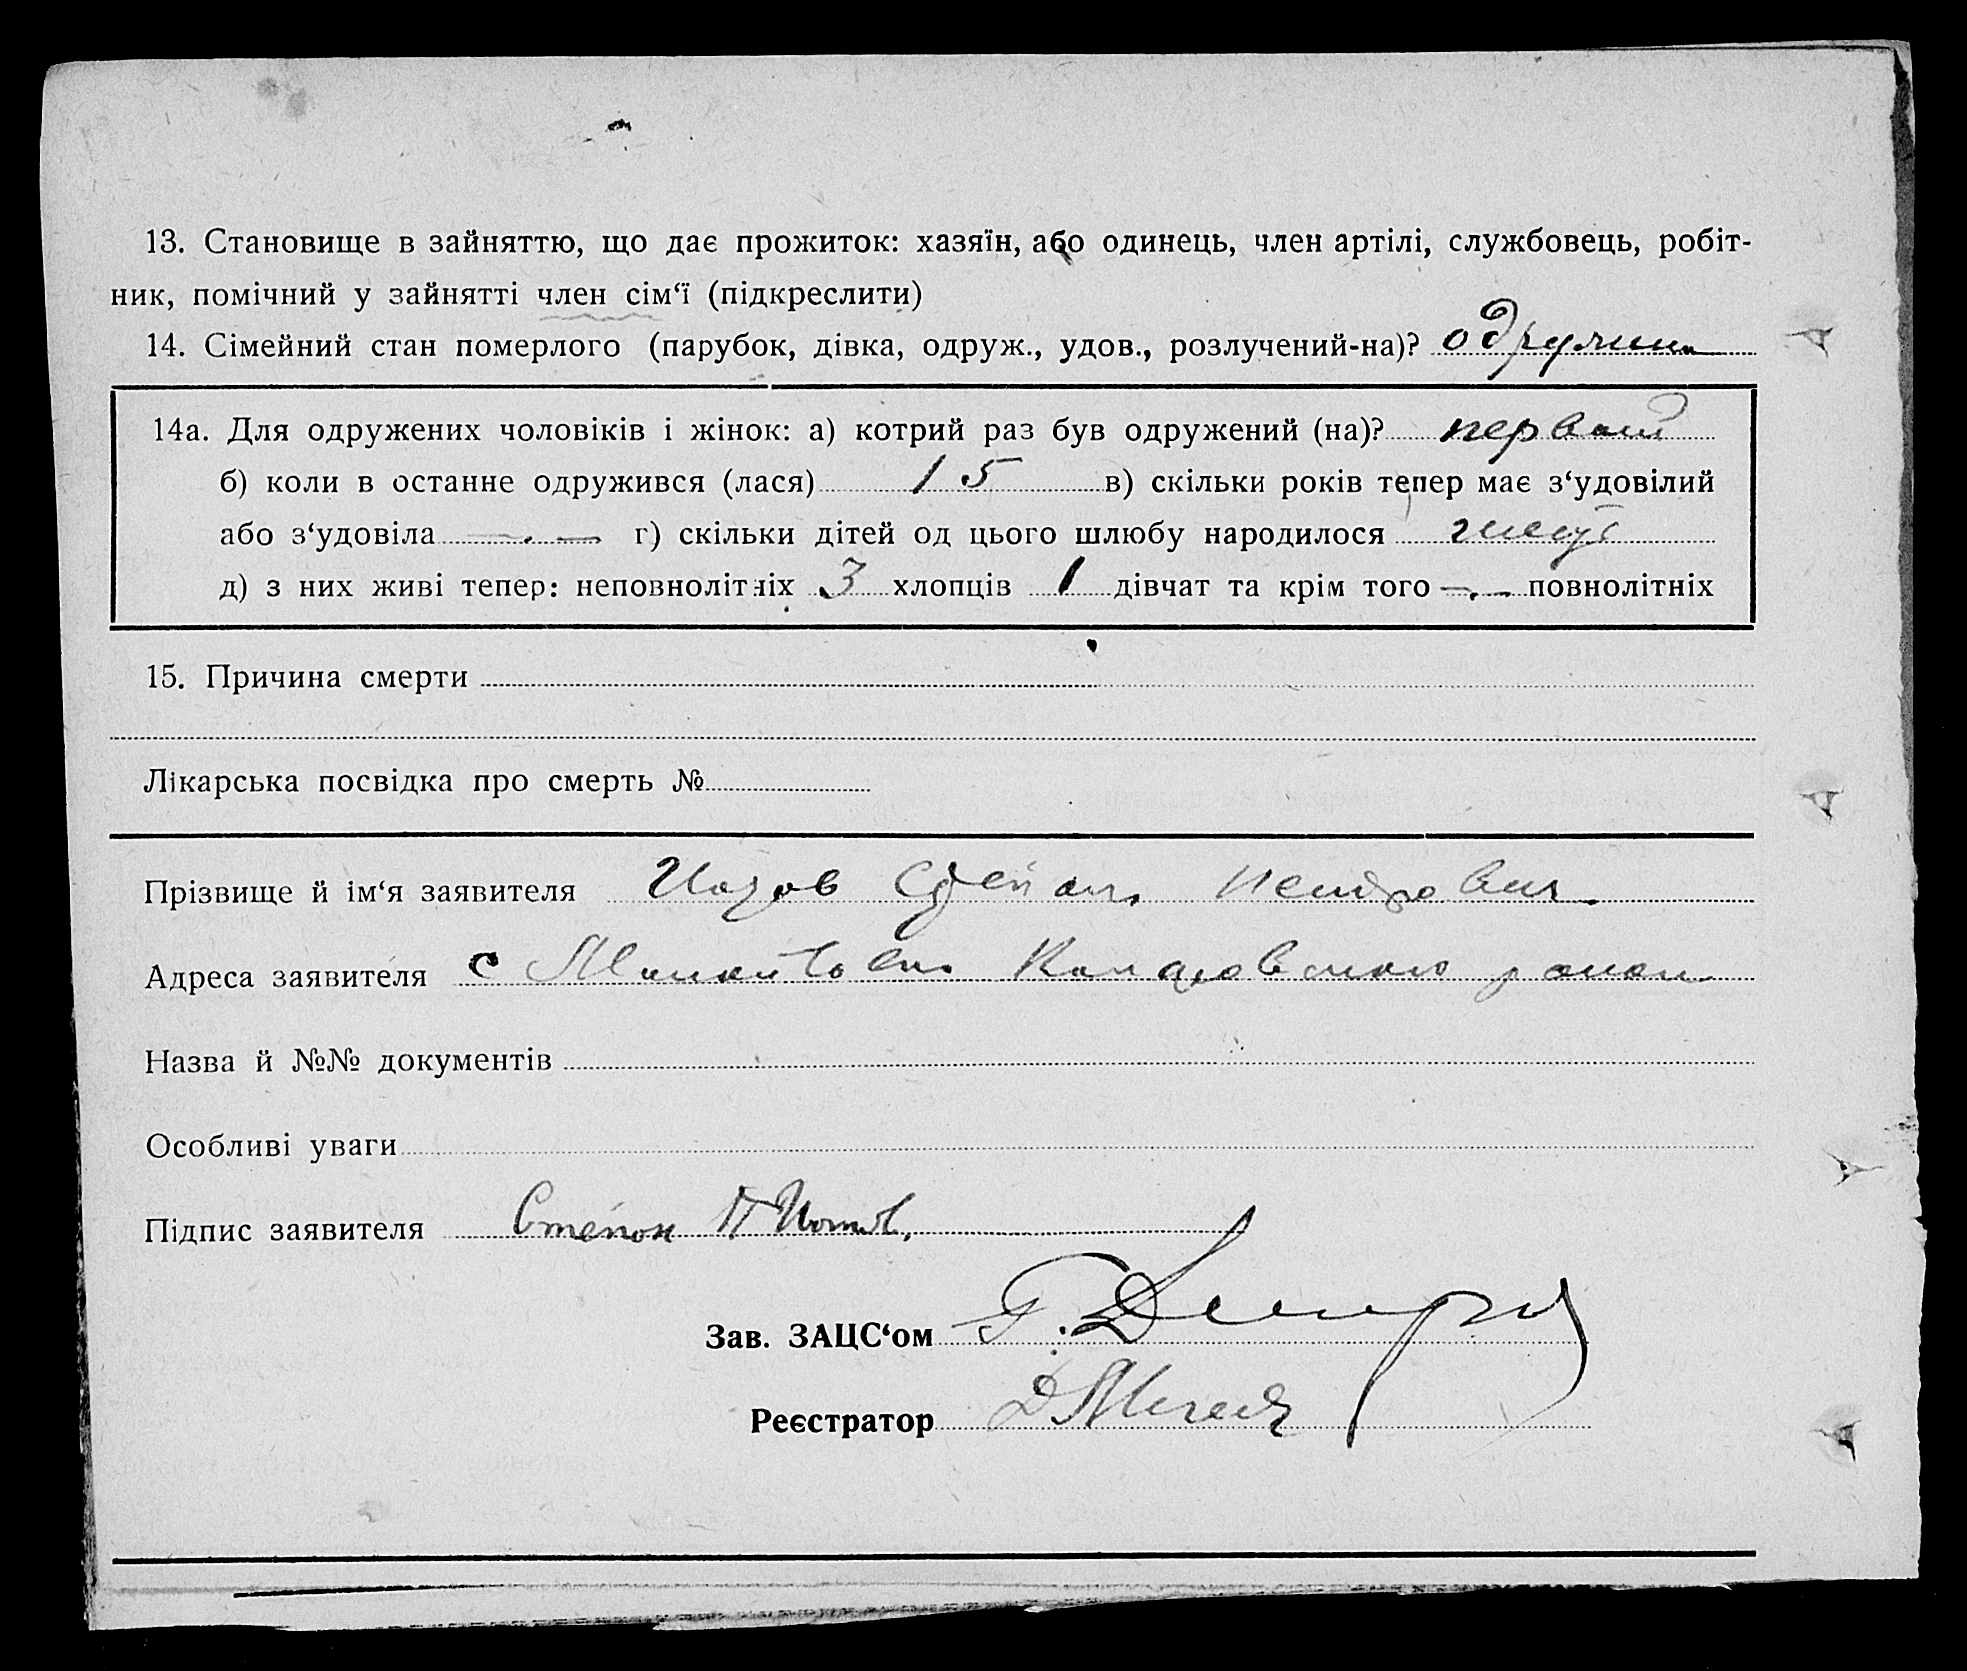 13. Становище в зайняттю, що дає прожиток: хазяїн, або одинець, член артілі, службовець, робіт-
ник, помічний у зайнятті член сім‘ї (підкреслити)
14. Сімейний стан померлого (парубок, дівка, одруж., удов., розлучений-на)?
14а. Для одружених чоловіків і жінок: а) котрий раз був одружений (на)? первый
б) коли в останне одружився (лася) 15 в) скільки років тепер має з‘удовілий
або з‘удовіла — . — г) скільки дітей од цього шлюбу народилося
д) з них живі тепер: неповнолітніх 3 хлопців 1 дівчат та крім того — . — повнолітніх
15. Причина смерти
Лікарська посвідка про смерть №
Прізвище й ім‘я заявителя Степан Петрович.
Адреса заявителя с
Назва й №№ документів
Особливі уваги
Підпис заявителя Степан П
Зав. ЗАЦС‘ом Г.
Реєстратор